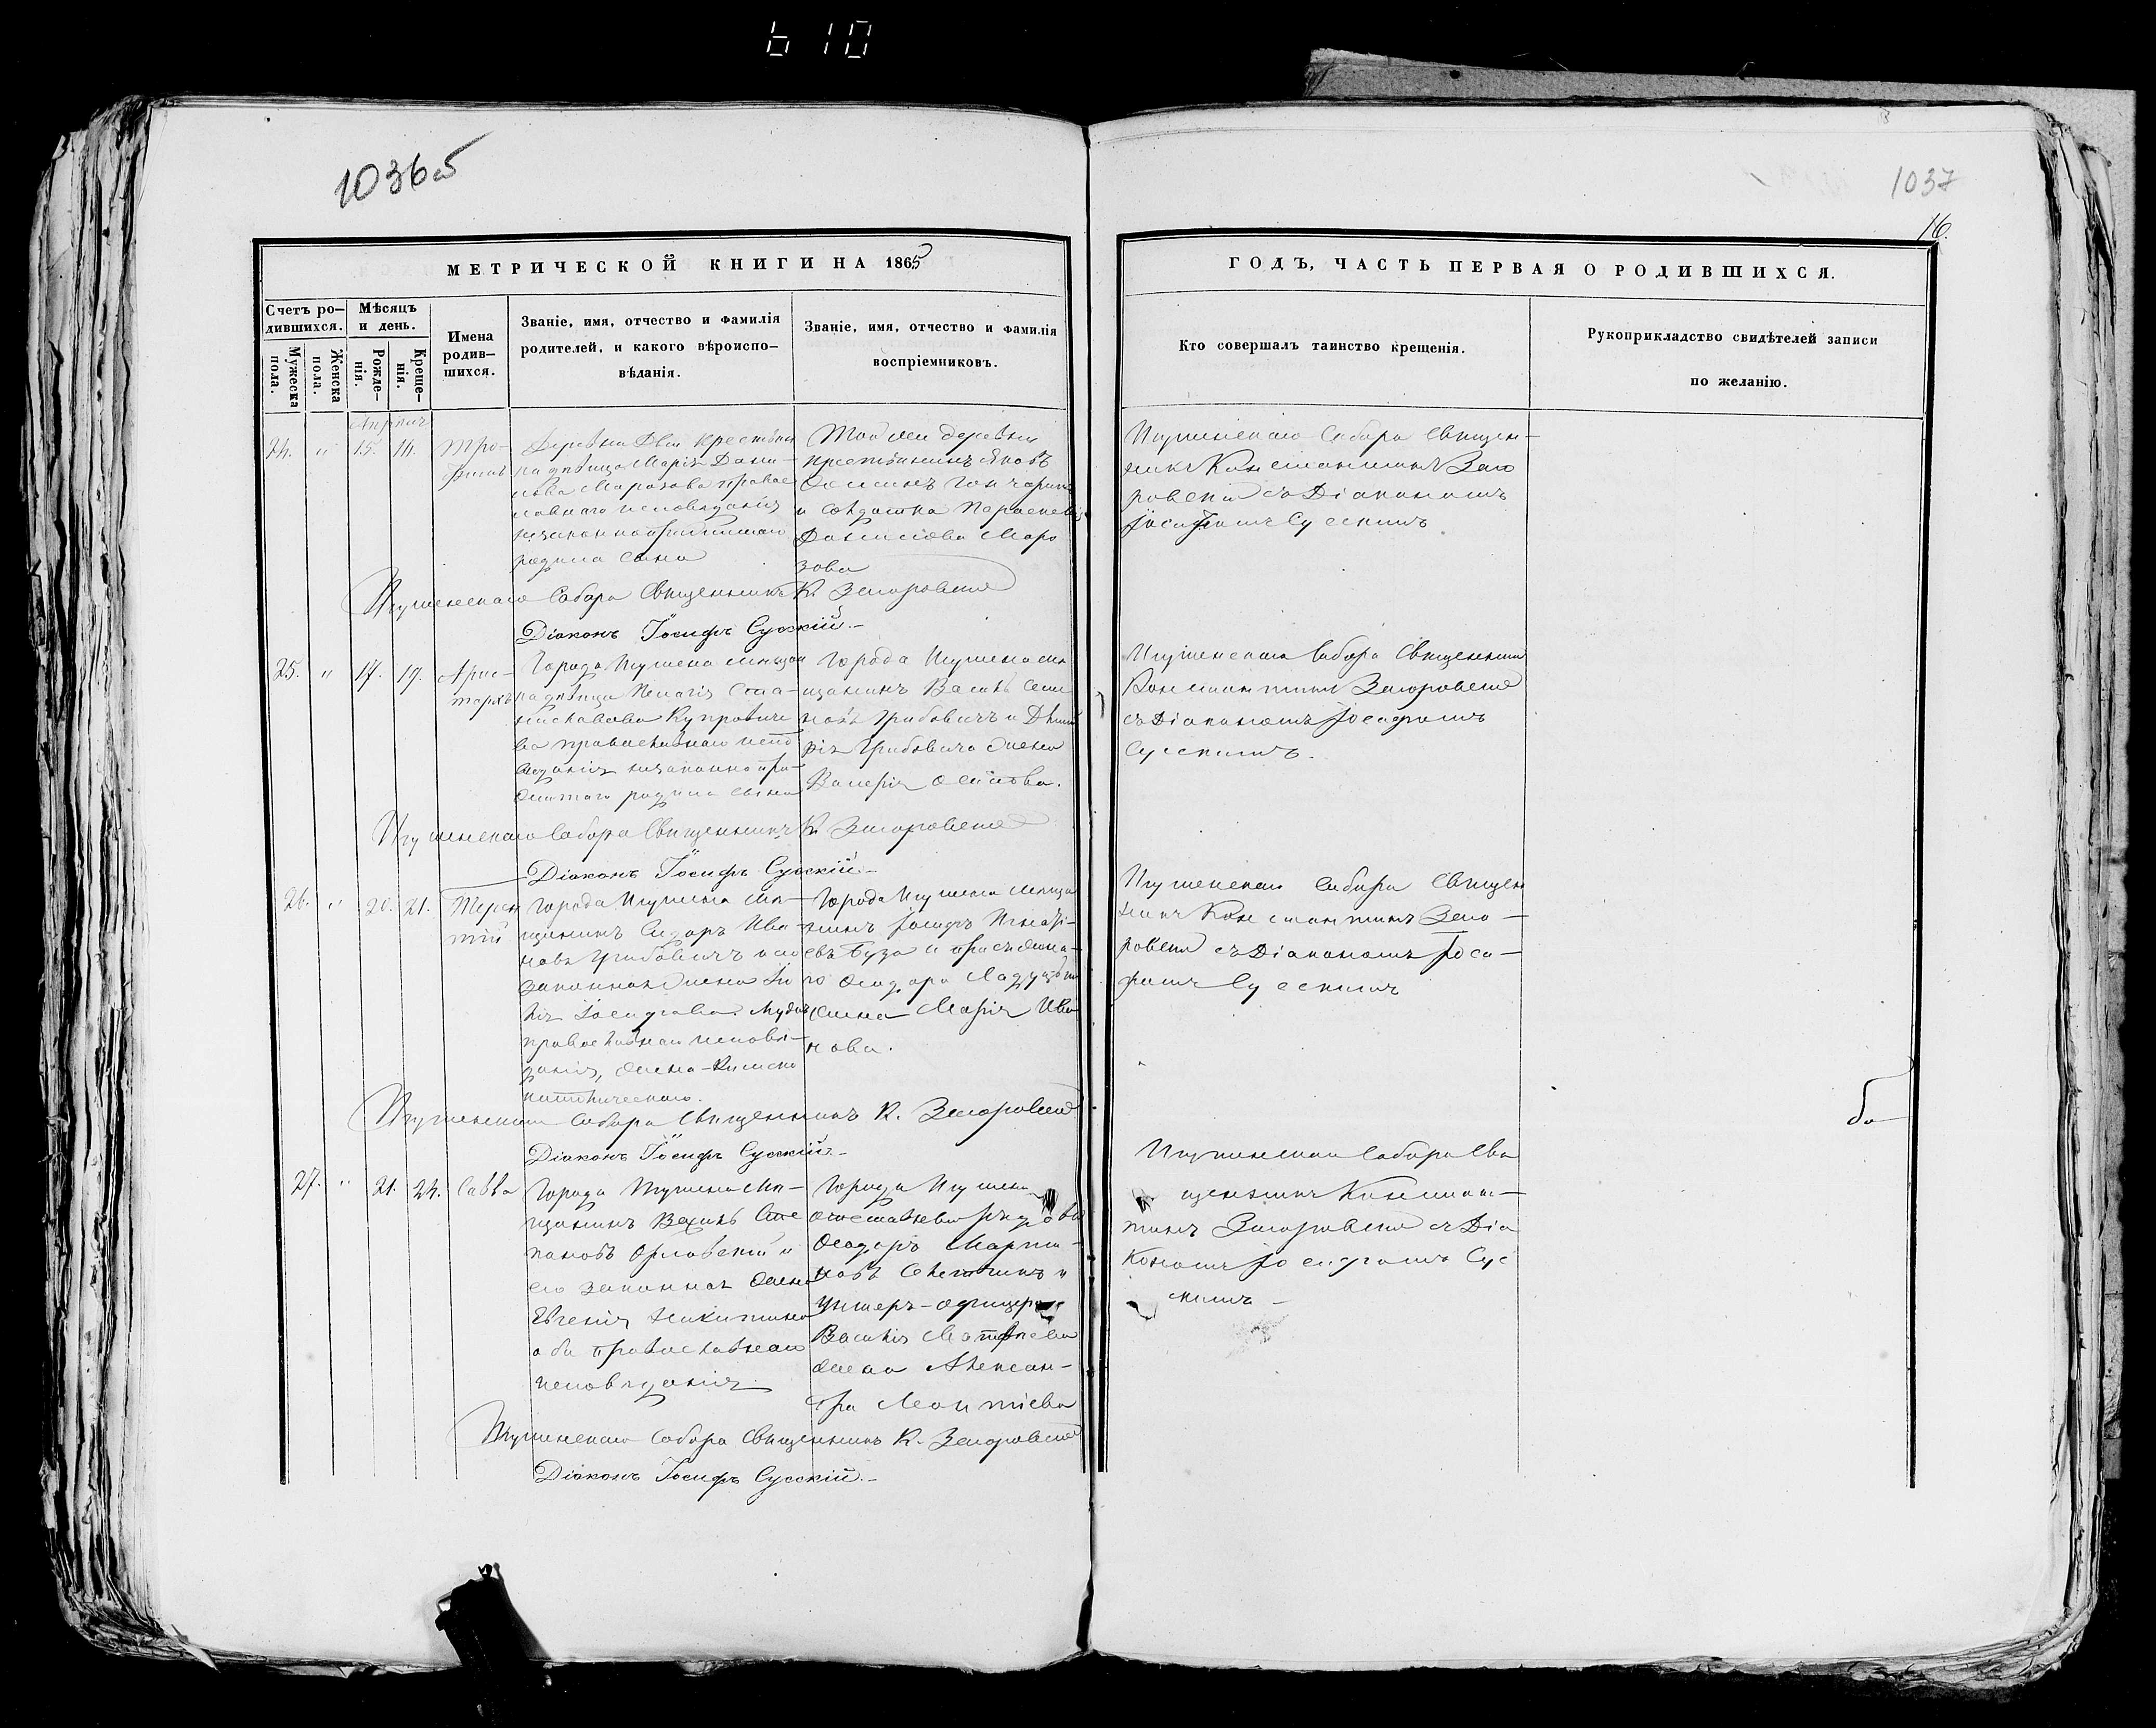 610
1036 об
1037
16.
МЕТРИЧЕСКОЙ КНИГИ НА 1865
ГОДЪ, ЧАСТЬ ПЕРВАЯ О РОДИВШИХСЯ.
Счетъ ро–
дившихся.
Мужеска
пола.
Женска
пола.
Мѣсяцъ
и день.
Рожде–
нія.
Креще–
нія.
Имена
родив–
шихся.
Званіе, имя, отчество и фамилія
родителей, и какого вѣроиспо–
вѣданія.
Званіе, имя, отчество и фамилія
воспріемниковъ.
Кто совершалъ таинство крещенія.
Рукоприкладство свидѣтелей записи
по желанію.
Апрѣль
24. " 15. 16. Тро-
фимъ
Деревни крестьян
ка дѣвица Марія Дани-
лова Морозова правос
лавнаго исповѣданія
незаконноприжитаго
родила сына
Той же деревни
крестьянинъ Яковъ
Осиповъ Гончарикъ
и солдатка Параскевія
Данилова Моро
зова
Игуменскаго Собора Священ-
никъ Константинъ Заго
ровскій съ Діакономъ
Іосифомъ Сусскимъ
Игуменскаго Собора Священникъ К. Загоровскій
Діаконъ Іосифъ Сусскій.–
25. " 17. 19. Арис-
тархъ
Города Игумена мѣщан
ка дѣвица Пелагія Ста-
ниславова Купревиче
ва православнаго испо
вѣданія незаконнопри-
житаго родила сына
Города Игумена мѣ
щанинъ Василь Семе
новъ Грибовичъ и Дмит
рія Грибовича жена
Валерія Осипова.
Игуменскаго Собора Священникъ
Константинъ Загоровскій
съ Діакономъ Іосифомъ
Сусскимъ.
Игуменскаго Собора Священникъ К. Загоровскій
Діаконъ Іосифъ Сусскій–
26. " 20. 21. Терен
тій
Города Игумена мѣ-
щанинъ Сидоръ Ива-
новъ Грибовичъ и его
законная жена
Іосифова
православнаго исповѣ-
данія, жена–Римско
католическаго.
Города Игумена мѣща
нинъ Іосифъ Игнаті-
евъ Буза и
го Ѳеодора
жена Марія Ива
нова.
Игуменскаго Собора Священ
никъ Константинъ Заго-
ровскій съ Діакономъ Іоси-
фомъ Сусскимъ
Игуменскаго Собора Священникъ К. Загоровскій
Діаконъ Іосифъ Сусскій–
бо
27. " 21. 24. Савва
Города Игумена мѣ-
щанинъ Сте
пановъ Орловскій и
его законная жена
Евгенія Никитина
оба православнаго
исповѣданія.
Города Игумена
отставной рядовой
Ѳеодоръ Марти-
новъ и
унтеръ-офицера
Василія Матвѣева
жена Алексан-
дра Леонтіева
Игуменскаго Собора Свя
щенникъ Констан-
тинъ Загоровскій съ Діа
кономъ Іосифомъ Сус
скимъ–
Игуменскаго Собора Священникъ К. Загоровскій
Діаконъ Іосифъ Сусскій.–